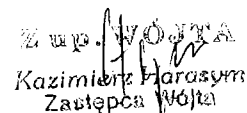 Z up. WÓJTA
Kazimierz Harasym
Zastępca Wójta